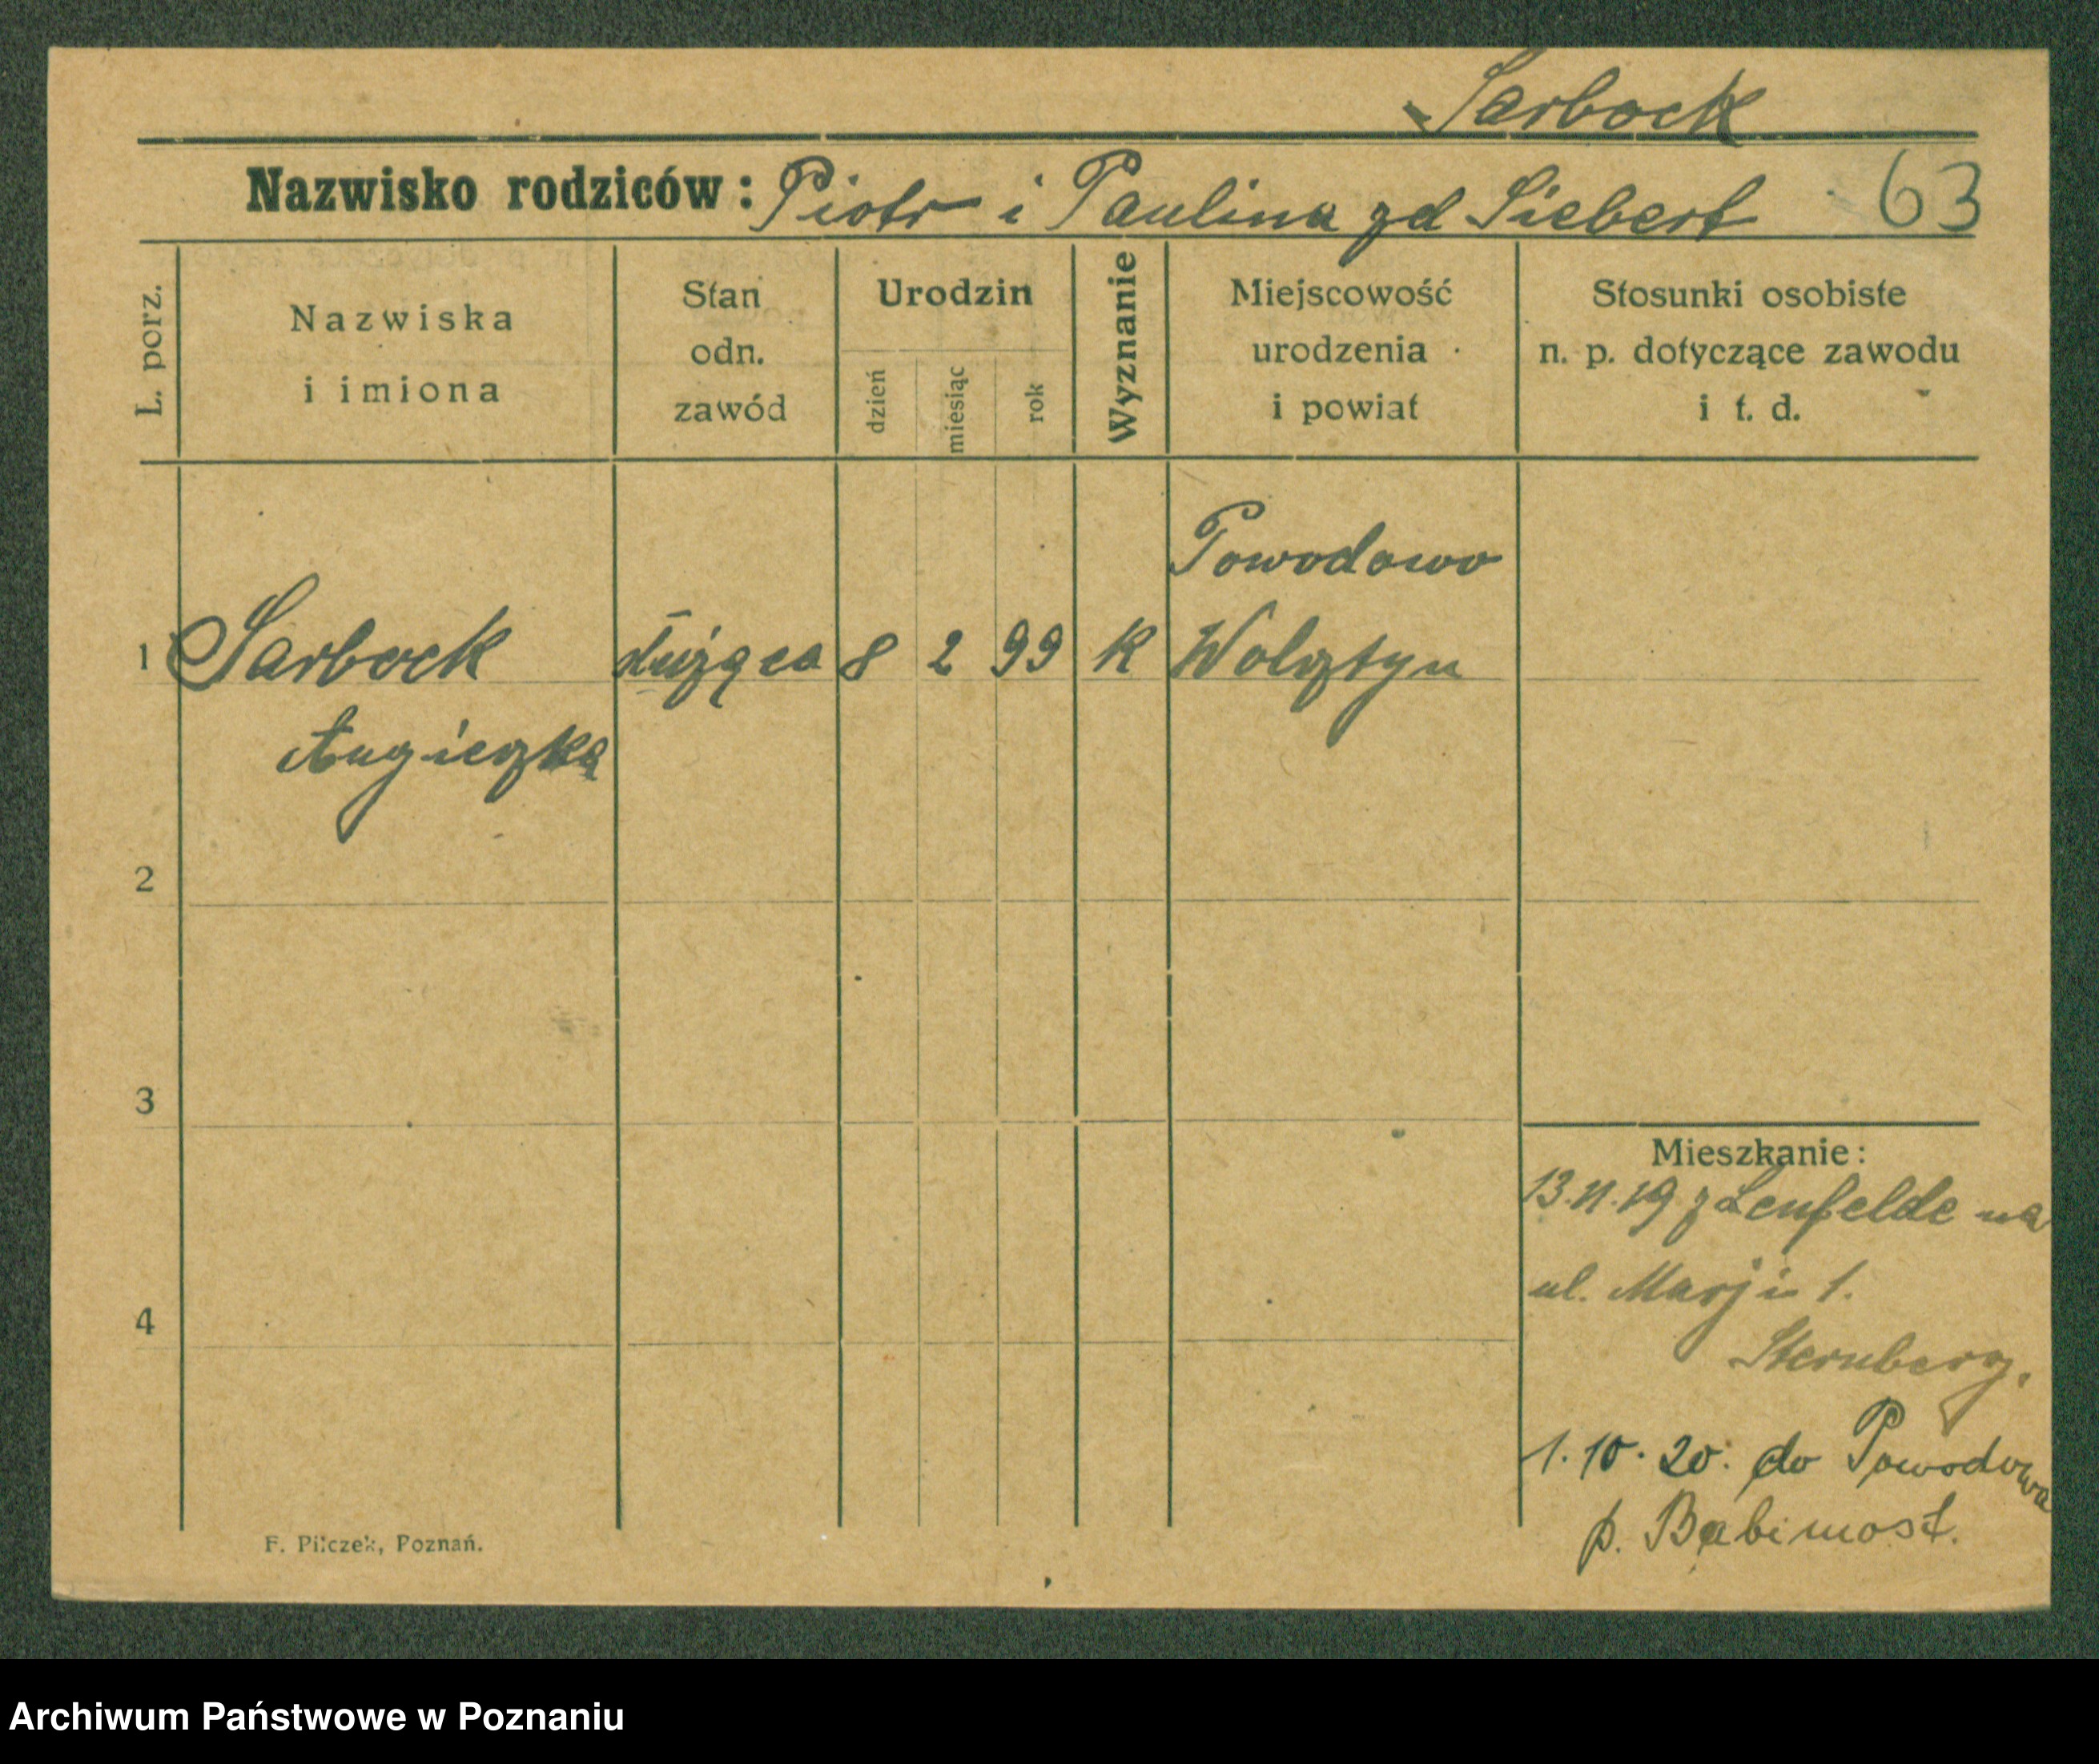 Sarbock
Nazwisko rodziców: Piotr i Paulina zd Siebert 63
L. porz.
Nazwiska
i imiona
Stan
odn.
zawód
Urodzin
dzień
miesiąc
rok
Wyznanie
Miejscowość
urodzenia
i powiat
Stosunki osobiste
n. p. dotyczące zawodu
i t. d.
Powodowo
1 Sarbock służąca 8 2 99 K Wolsztyn
Agnieszka
2
3
4
Mieszkanie:
13.11.19 z na
ul. Marji 1.
Sternberg.
1.10.20. do Powodowa
p. Babimost.
F. Pilczek, Poznań.
Archiwum Państwowe w Poznaniu